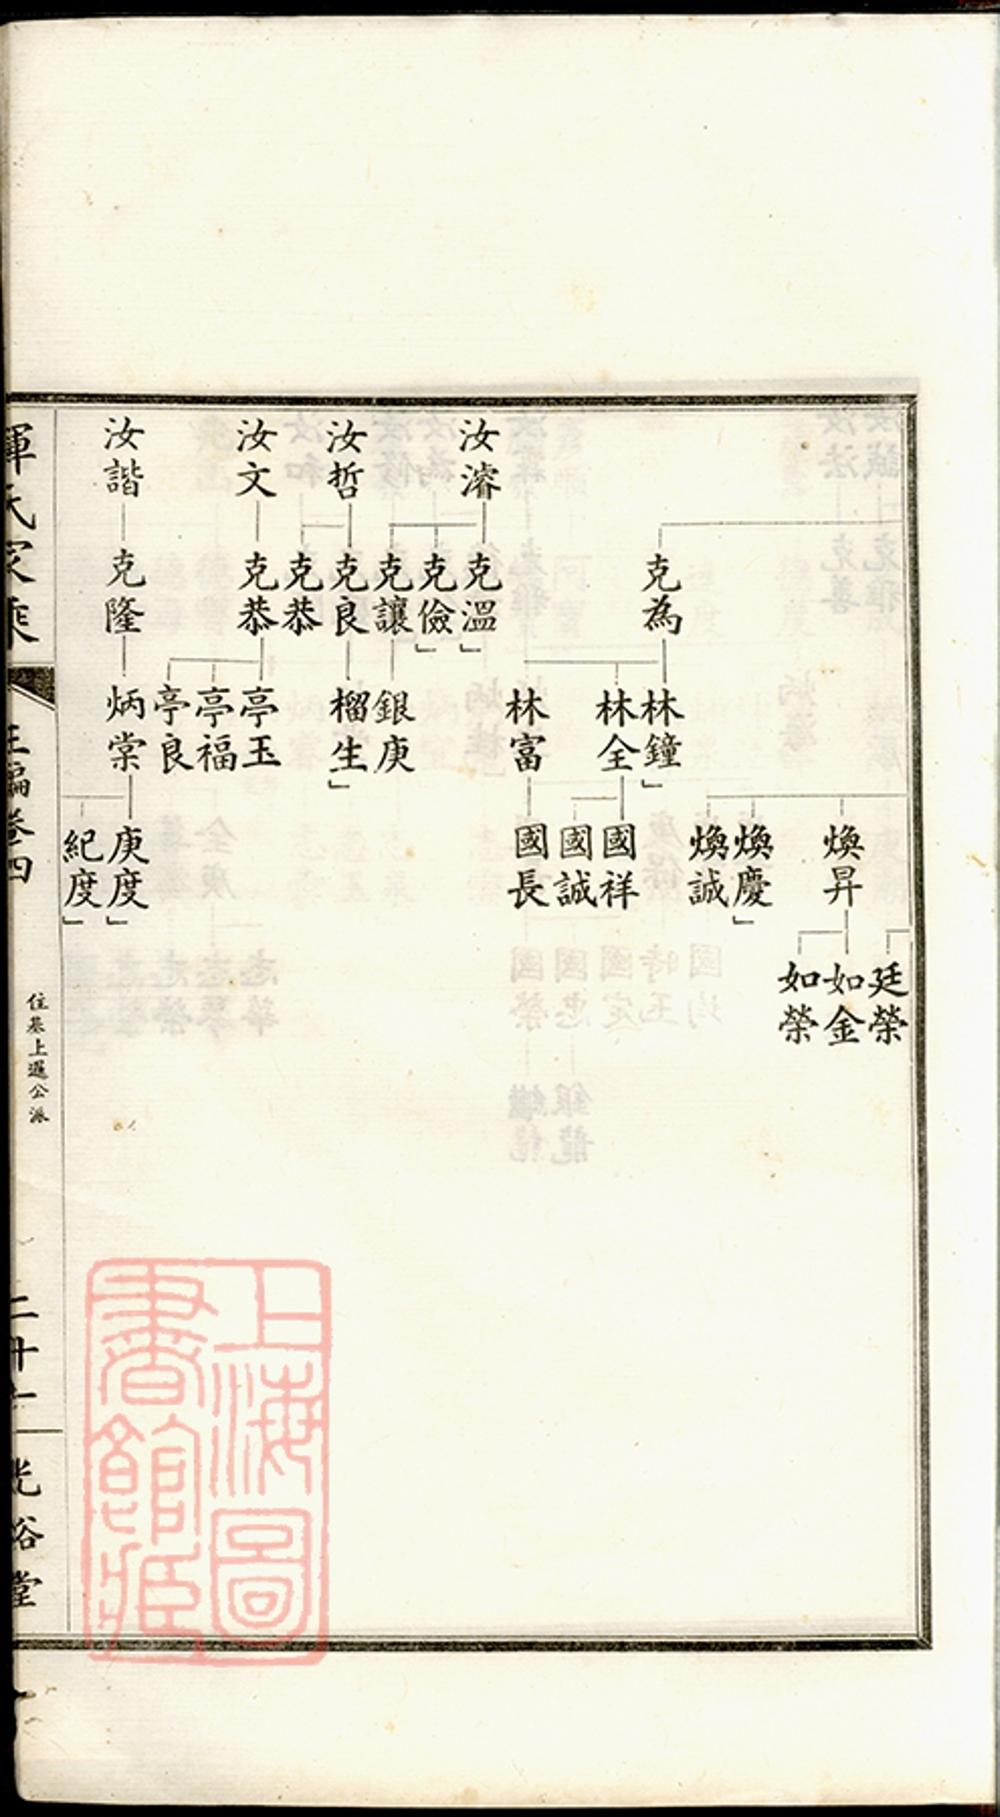 廷榮
煥昇
如金
如榮
煥慶
煥誠
克為
林鐘
林全
國祥
國誠
林富
國長
汝濬
克溫
克儉
克讓
銀庚
汝哲
克良
榴生
克恭
汝文
克恭
亭玉
亭福
亭良
汝諧
克隆
炳棠
庚度
紀度
惲氏家乘
正編卷四
住基上暹公派
光裕堂
上海圖書館藏